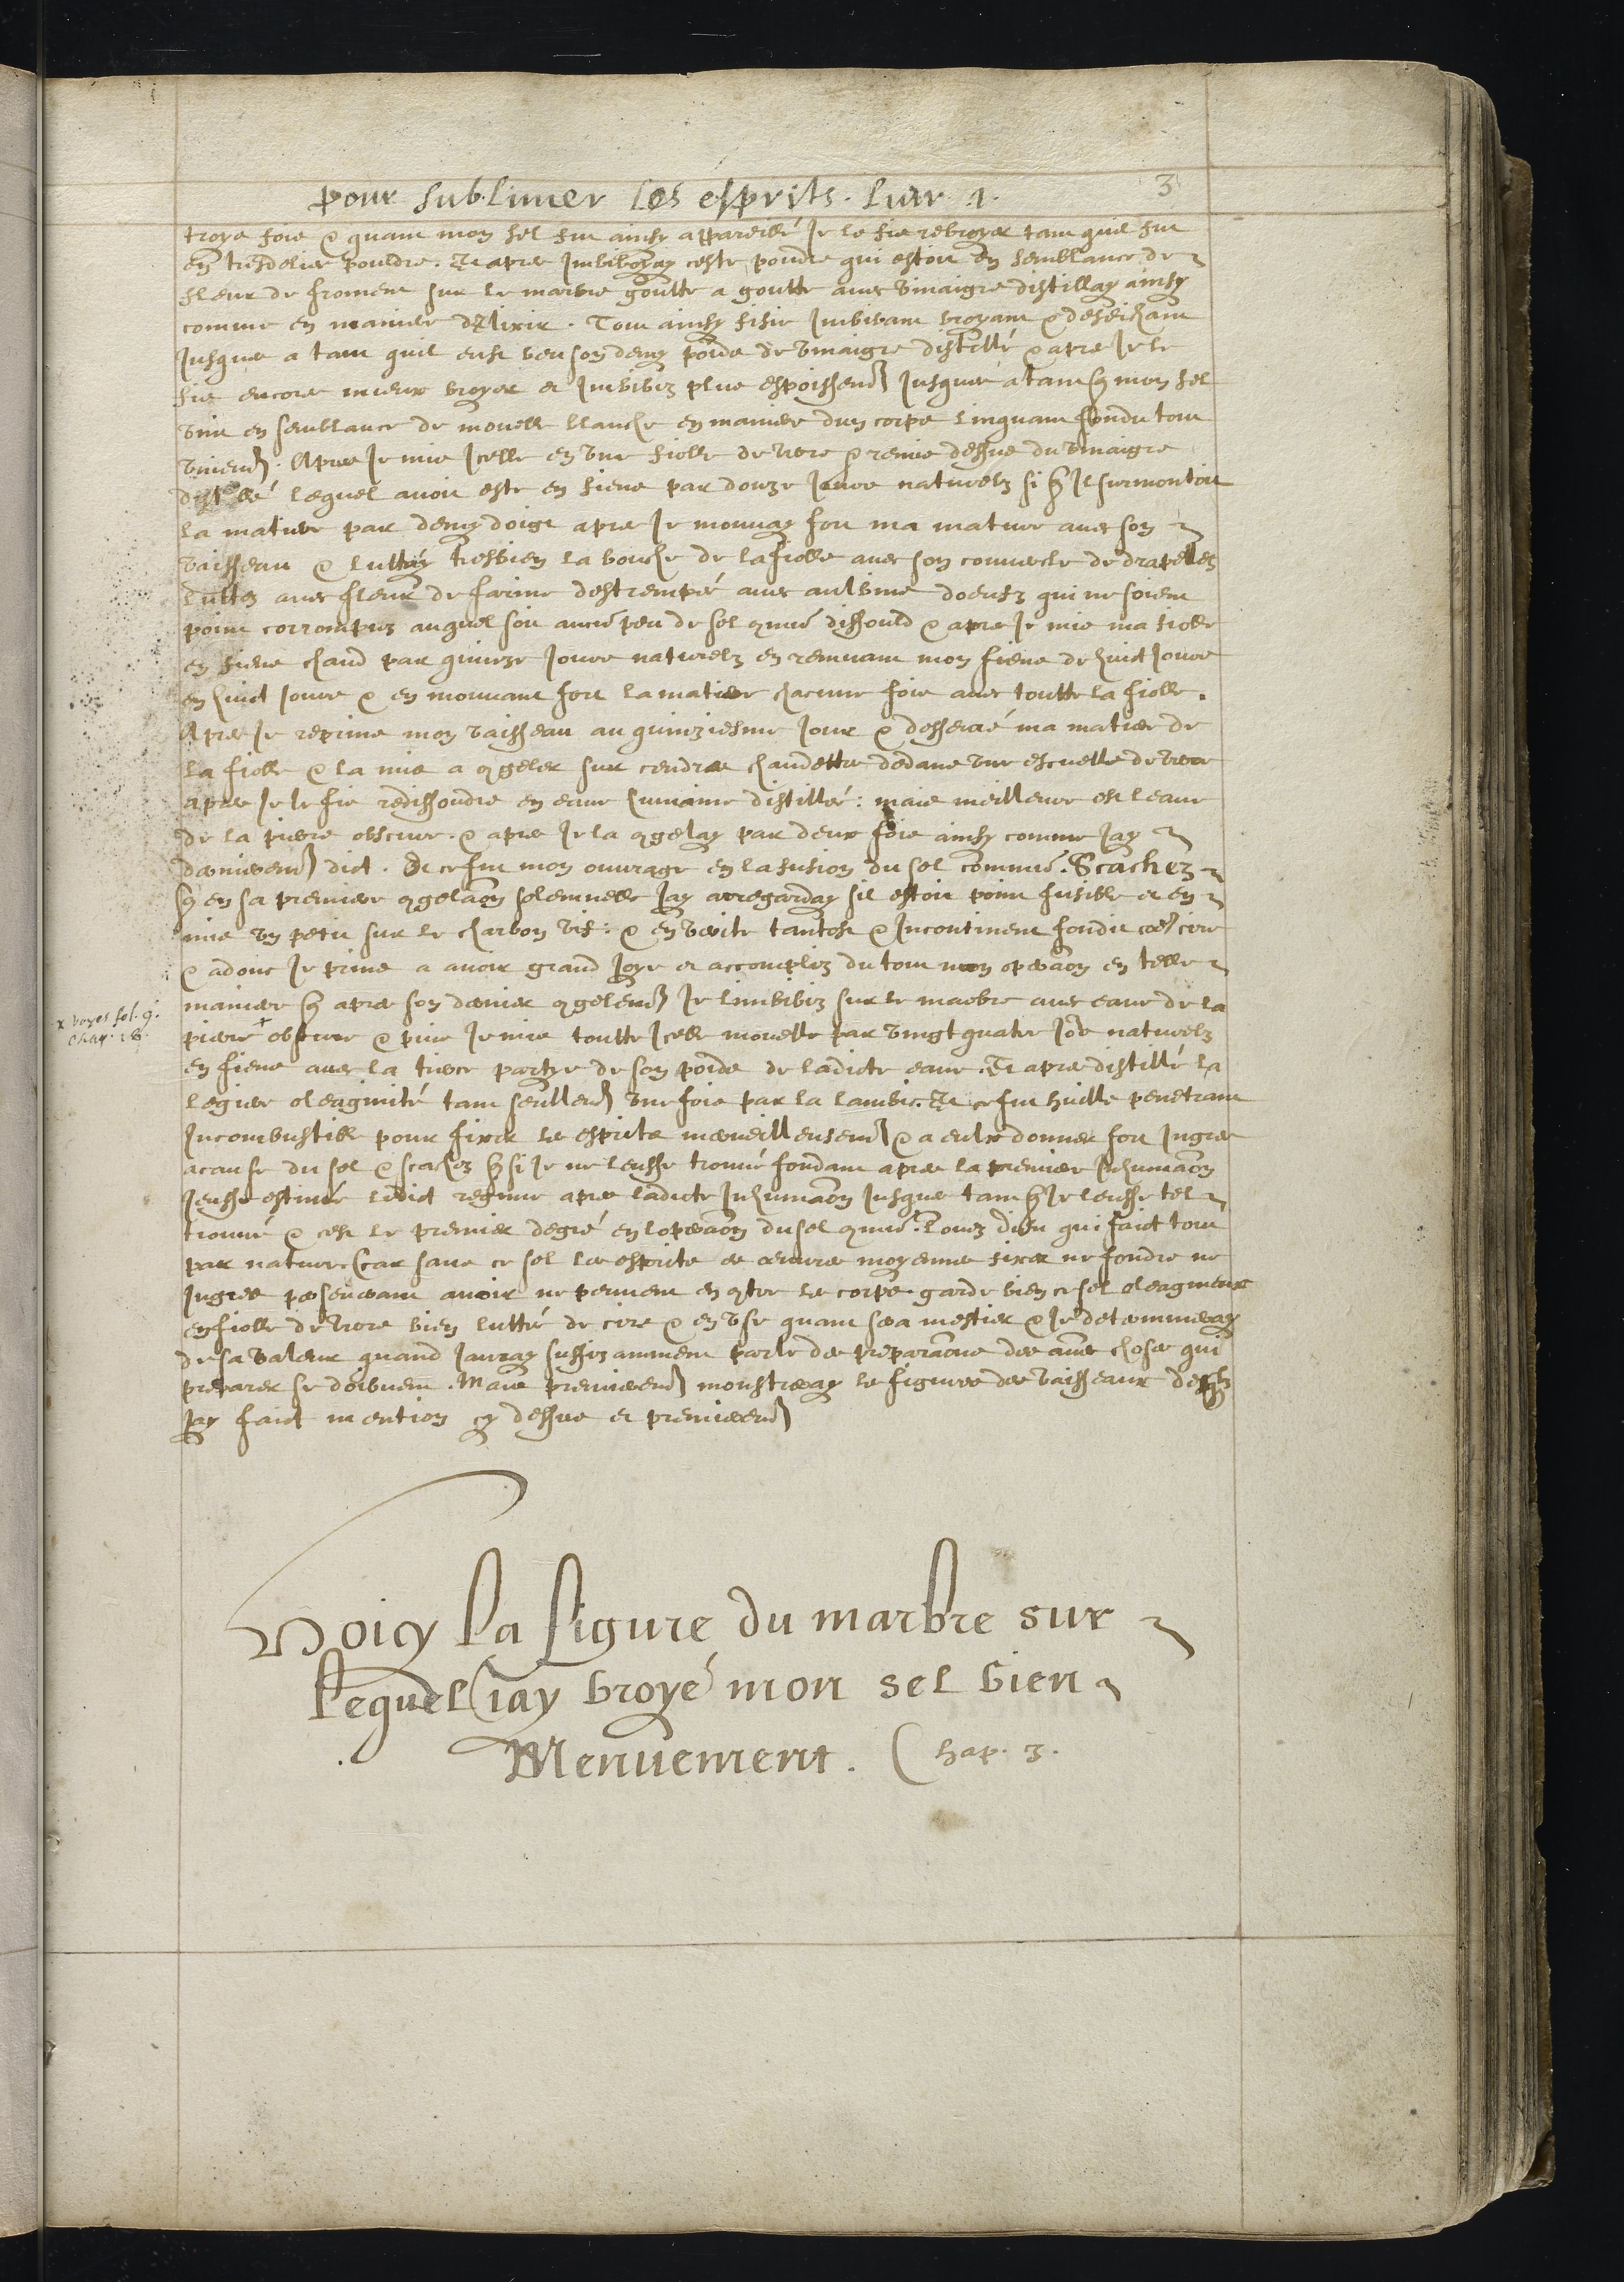 pour sublimer les esprits. Liur. 1.
3
troys fois & quant mon sel fut ainsy appareillé Je le fis rebroyer tant quil fut
en tresdelie pouldre. Et apres Imbibay ceste poudre qui estoit en semblance de
fleur de froment sur le marbre goutte a goutte avec vinaigre distillay ainsy
comme en maniere dElixir. Tout ainsy fisie Imbibant broyant & deseichant
Jusques a tant quil eust beu son demy poids de vinaigre distillé & apres Je le
fis encore mieux broyer et Imbibez plus espoissemt Jusques a tant q mon sel
vint en semblance de mouelle blanche en maniere dun corps linquant fondu tout
vniemt. Apres Je mis Icelle en vne fiolle de verre & remis dessus du vinaigre
distillé lequel avoit esté en fiens par douze Jours naturelz si q Il surmontoit
la matiere par demy doigt apres Je mouuay fort ma matiere avec son
vaisseau & luttay tresbien la bouche de la fiolle avec son couvercle de drapelles
luttez avec fleur de farine destrempé avec aulbins doeufz qui ne soient
point corrompuz auquel soit aucū peu de sel qmū dissould & apres Je mis ma fiolle
en fiens chaud par quinze Jours naturelz en remuant mon fiens de huict Jours
en huict Jours & en mouuant fort la matiere chacune fois avec toutte la fiolle.
Apres Je reprins mon vaisseau au quinziesme Jour & desserré ma matiere de
la fiolle & la mis a qgeler sur cendres chaudettes dedans vne escuelle de verre
apres Je le fis redissoudre en eaue humaine distillée: mais meilleure est leaue
de la pierre obscure. & apres Je la qgelay par deux fois ainsy comme Jay
derniermt dict. Et ce fut mon ouvrage en la fusion du sel commū. Scachez
q en sa premiere qgelaōn solemnelle Jay arregarday sil estoit point fusible et en
mis vn petit sur le charbon vif: & en verité tantost & Incontinent fondit coe cire
& adonc Je prins a avoir grand Joye et accomplis du tout mon opeāon en telle
maniere q apres son dernier qgelemt Je limbibiz sur le marbre avec eaue de la
pierre + obscure & puis Je mis toutte Icelle mouelle par vingt quatre Jors naturelz
en fiens avec la tierce partye de son poids de ladicte eaue. Et apres distillé la
legiere oleaginité tant seullemt vne fois par la lambic. Et ce fut huille penetrant
Incombustible pour fixer les esprits merveilleusemt & a eulx donner fort Ingres
a cause du sel & scachez q si Je ne leusse trouué fondant apres la premiere Inhumaōn
Jeusse estimé ledict regime apres ladicte Inhumaōn Jusques tant q Je leusse tel
trouué & cest le premier degré en lopeāon du sel qmū. Louez dieu qui faict tout
par nature. Car sans ce sel les esprits et oeuvres moyenne fixer ne fondre ne
Ingres perseverant avoir ne peuvent en qtre le corps. garde bien ce sel oleagineux
en fiolle de verre bien lutté de cire & en vse quant sera mestier & Je determineray
de sa valeur quand Jauray suffizamment parlé des preparaōns des aues choses qui
preparer se doibuent. Mais premieremt monstreray les figures des vaisseaux desqlz
Jay faict mention cy dessus et premieremt
x voyes fol. 9.
chap. 18.
Voicy la figure du marbre sur
lequel iay broyé mon sel bien
Menuement. Chap. 3.